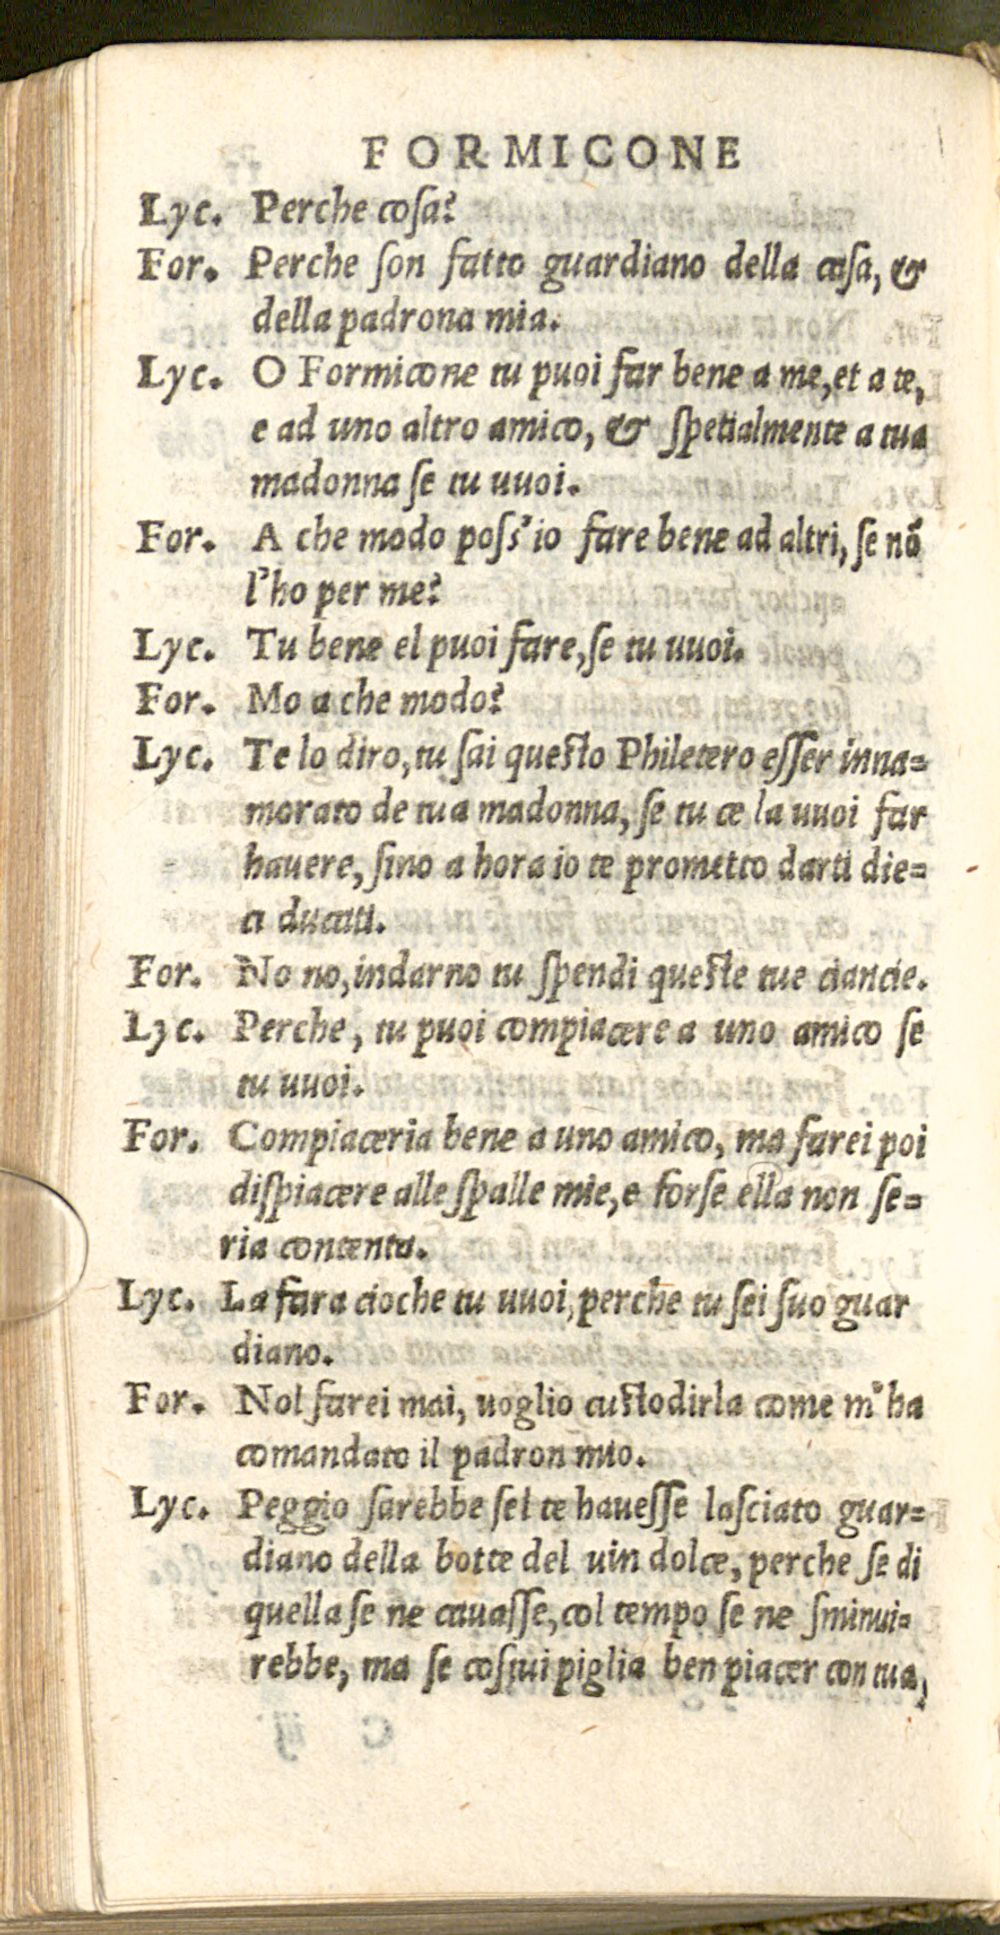 FORMICONE
Lyc. Perche coſa?
For. Perche ſon fatto guardiano della caſa, &
della padrona mia.
Lyc. O Formicone tu puoi far bene a me,et a te,
e ad uno altro amico, & ſpetialmente a tua
madonna ſe tu uuoi.
For. A che modo poſs'io fare bene ad altri, ſe nõ
l'ho per me?
Lyc. Tu bene el puoi fare,ſe tu uuoi.
For. Mo a che modo?
Lyc. Te lo diro,tu ſai queſto Philetero eſſer inna=
morato de tua madonna, ſe tu ce la uuoi far
hauere, ſino a hora io te prometto darti die=
ci ducatti.
For. No no,indarno tu ſpendi queſte tue ciancie.
Lyc. Perche, tu puoi compiacere a uno amico ſe
tu uuoi.
For. Compiaceria bene a uno amico, ma farei poi
diſpiacere alle ſpalle mie,e forſe ella non ſe=
ria contenta.
Lyc. La fara cioche tu uuoi,perche tu ſei ſuo guar
diano.
For. Nol farei mai, uoglio cuſtodirla come m'ha
comandato il padron mio.
Lyc. Peggio ſarebbe ſel te haueſſe laſciato guar=
diano della botte del uin dolce, perche ſe di
quella ſe ne cauaſſe,col tempo ſe ne ſminui=
rebbe, ma ſe coſtui piglia ben piacer con tua,